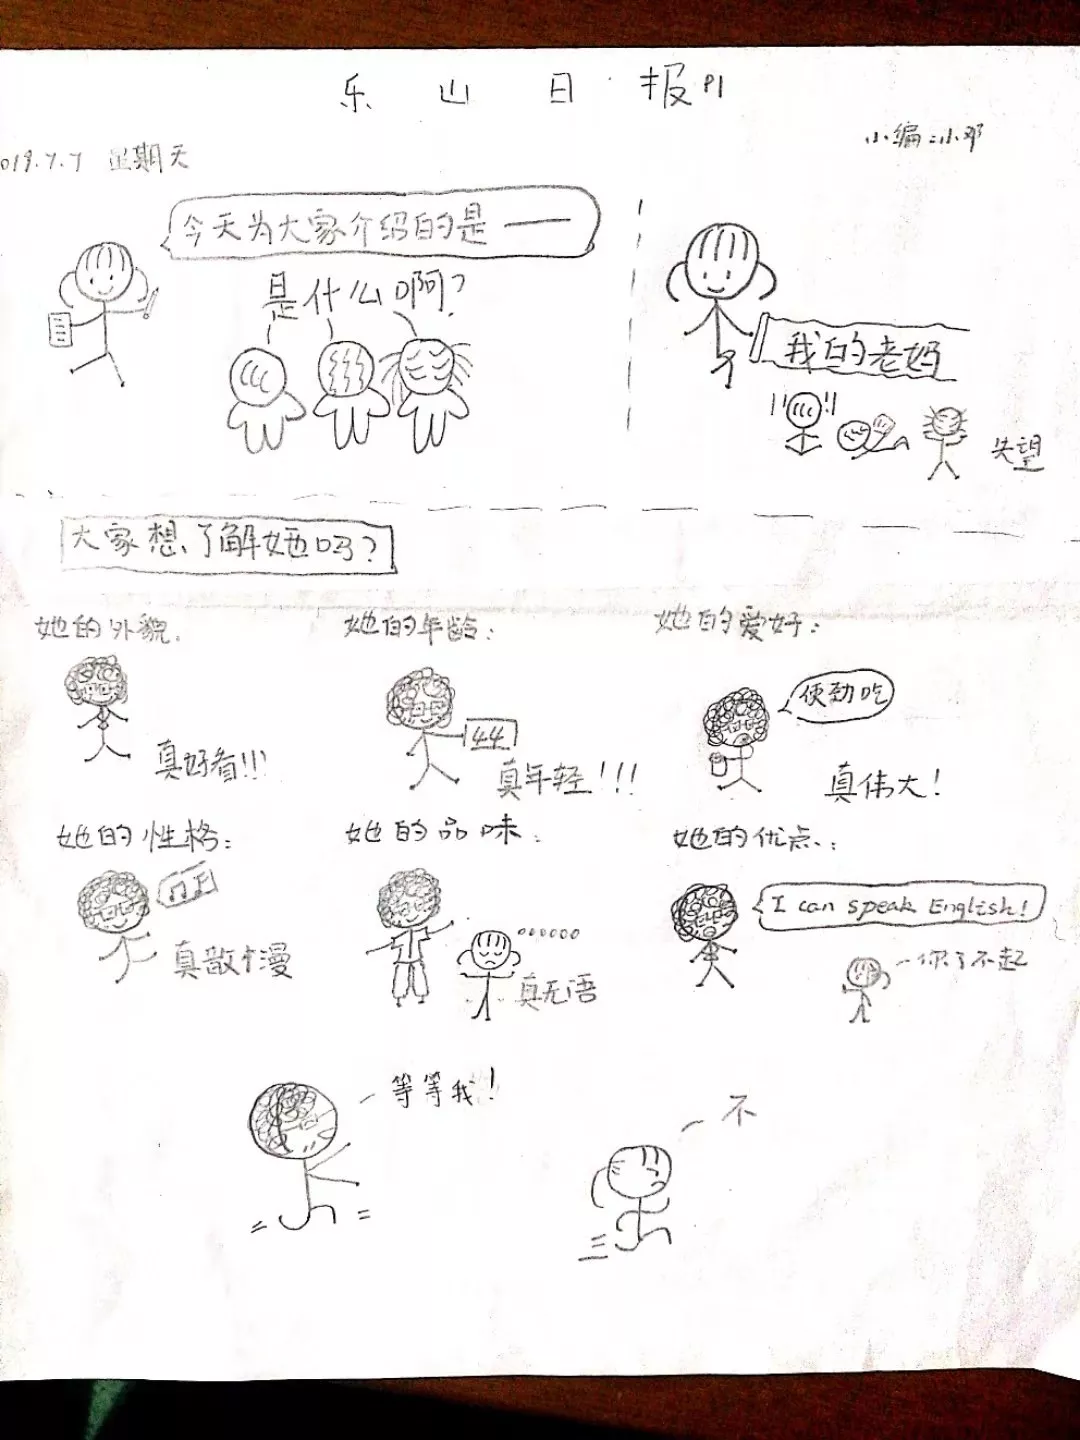 乐山日报P1
019.7.7 星期天
小编:小邓
今天为大家介绍的是——
是什么啊?
我的老妈
!! !!
失望
大家想了解她吗?
她的外貌:
真好看!!!
她的年龄:
44
真年轻!!!
她的爱好:
使劲吃
真伟大!
她的性格:
真散漫
她的品味:
真无语
她的优点:
I can speak English!
你了不起
等等我!
不